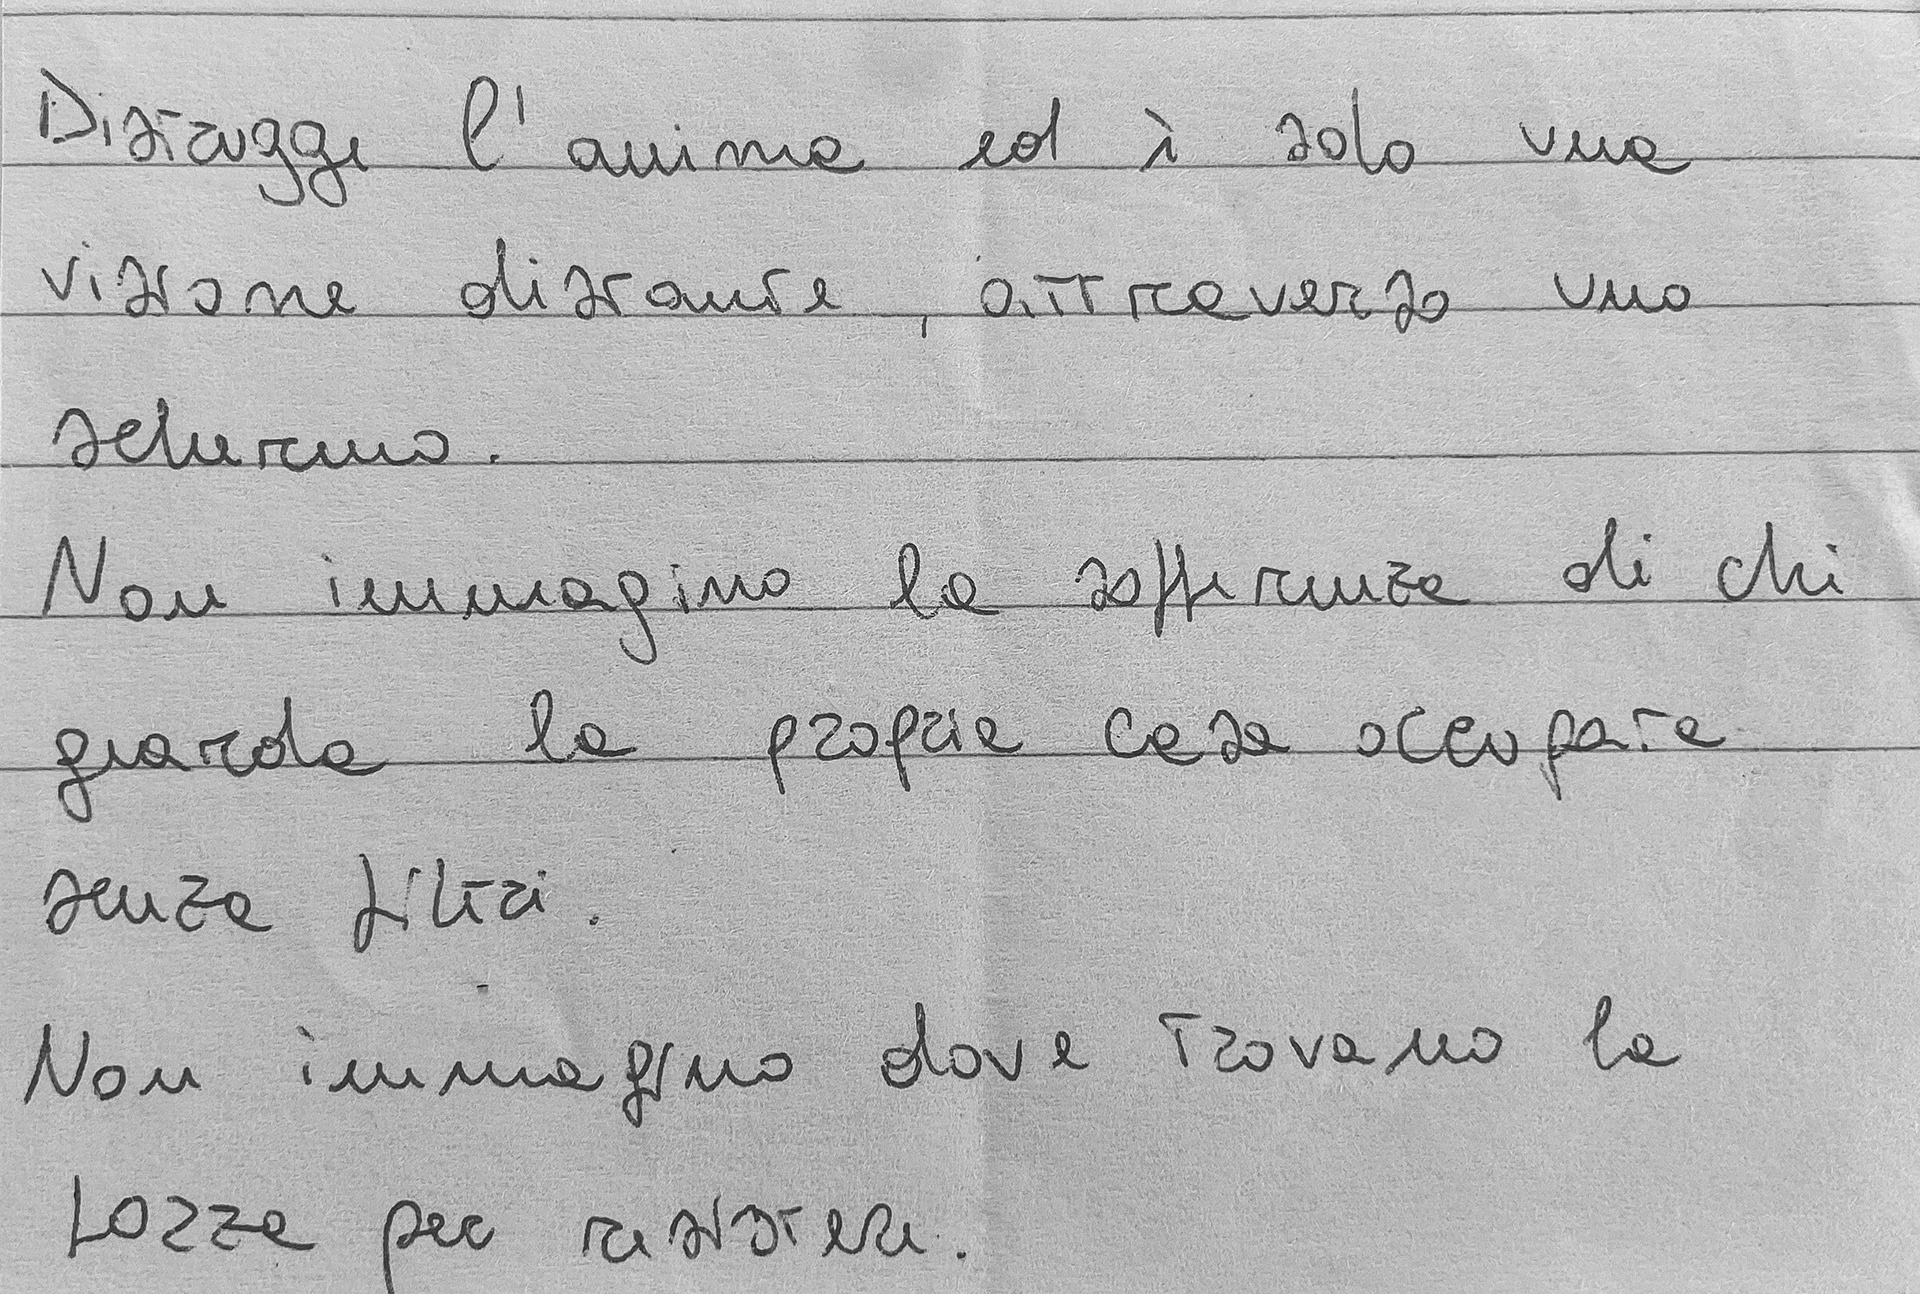 Distrugge l'anima ed è solo una
visione distante, attraverso uno
schermo.
Non immagino la sofferenza di chi
guarda la propria casa occupata
senza filtri.
Non immagino dove trovano la
forza per resistere.